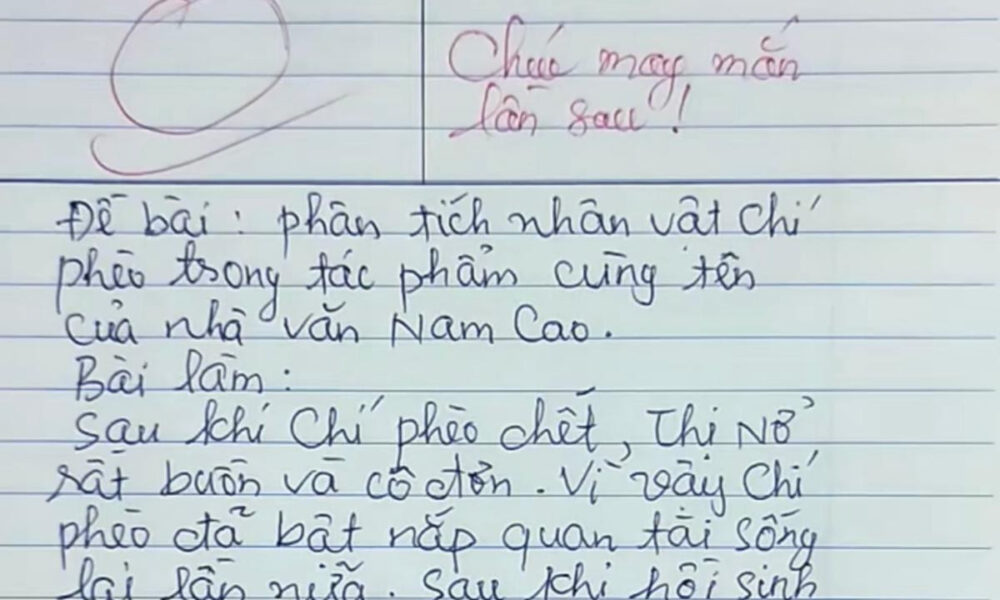 Chúc may mắn
lần sau!
Đề bài: phân tích nhân vật Chí
phèo trong tác phẩm cùng tên
của nhà văn Nam Cao.
Bài làm:
Sau khi Chí phèo chết, Thị Nở
rất buồn và cô đơn. Vì vậy Chí
phèo đã bật nắp quan tài sống
lại lần nữa. Sau khi hồi sinh